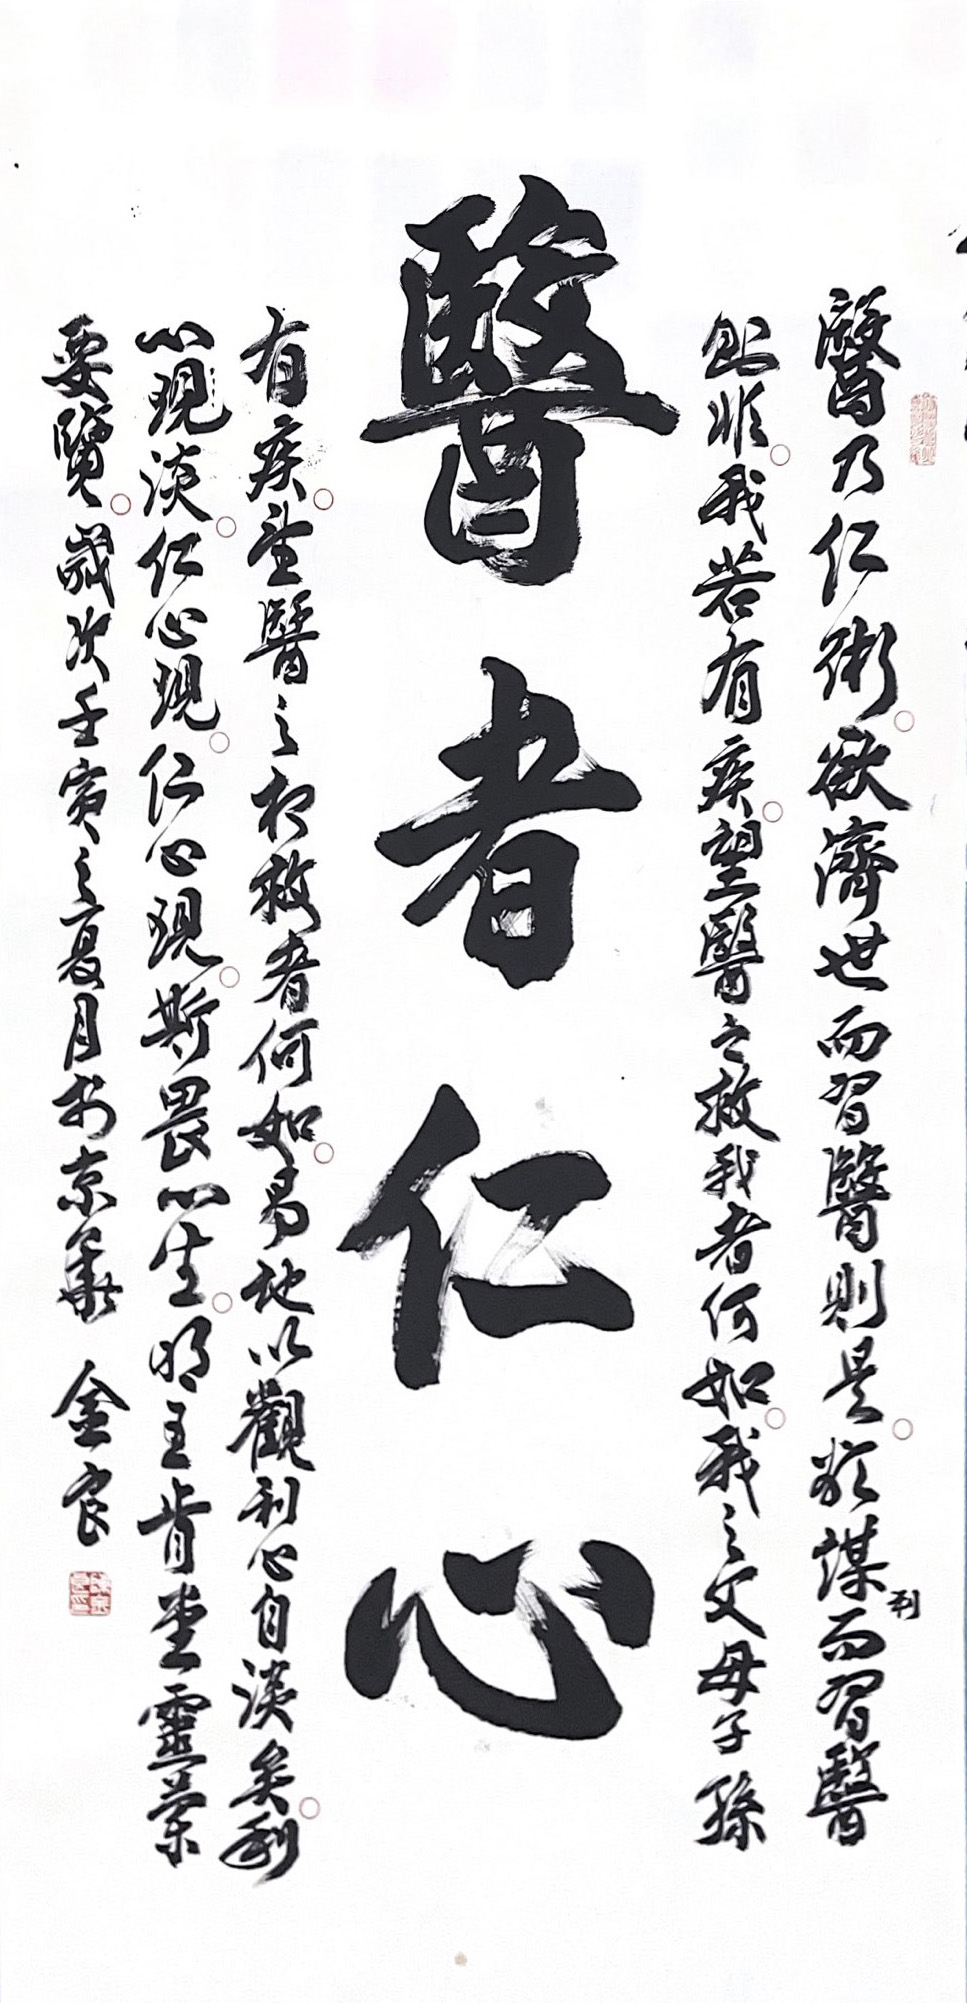 醫乃仁術欲濟世而習醫則是欲謀利而習醫
則非我若有疾望醫之救我者何如我之父母子孫
醫者仁心
有疾望醫之相救者何如易地以觀利心自淡矣利
心現淡仁心現仁心現斯畏心生明王肯堂靈蘭
要覽歲次壬寅之夏月於京華
金良